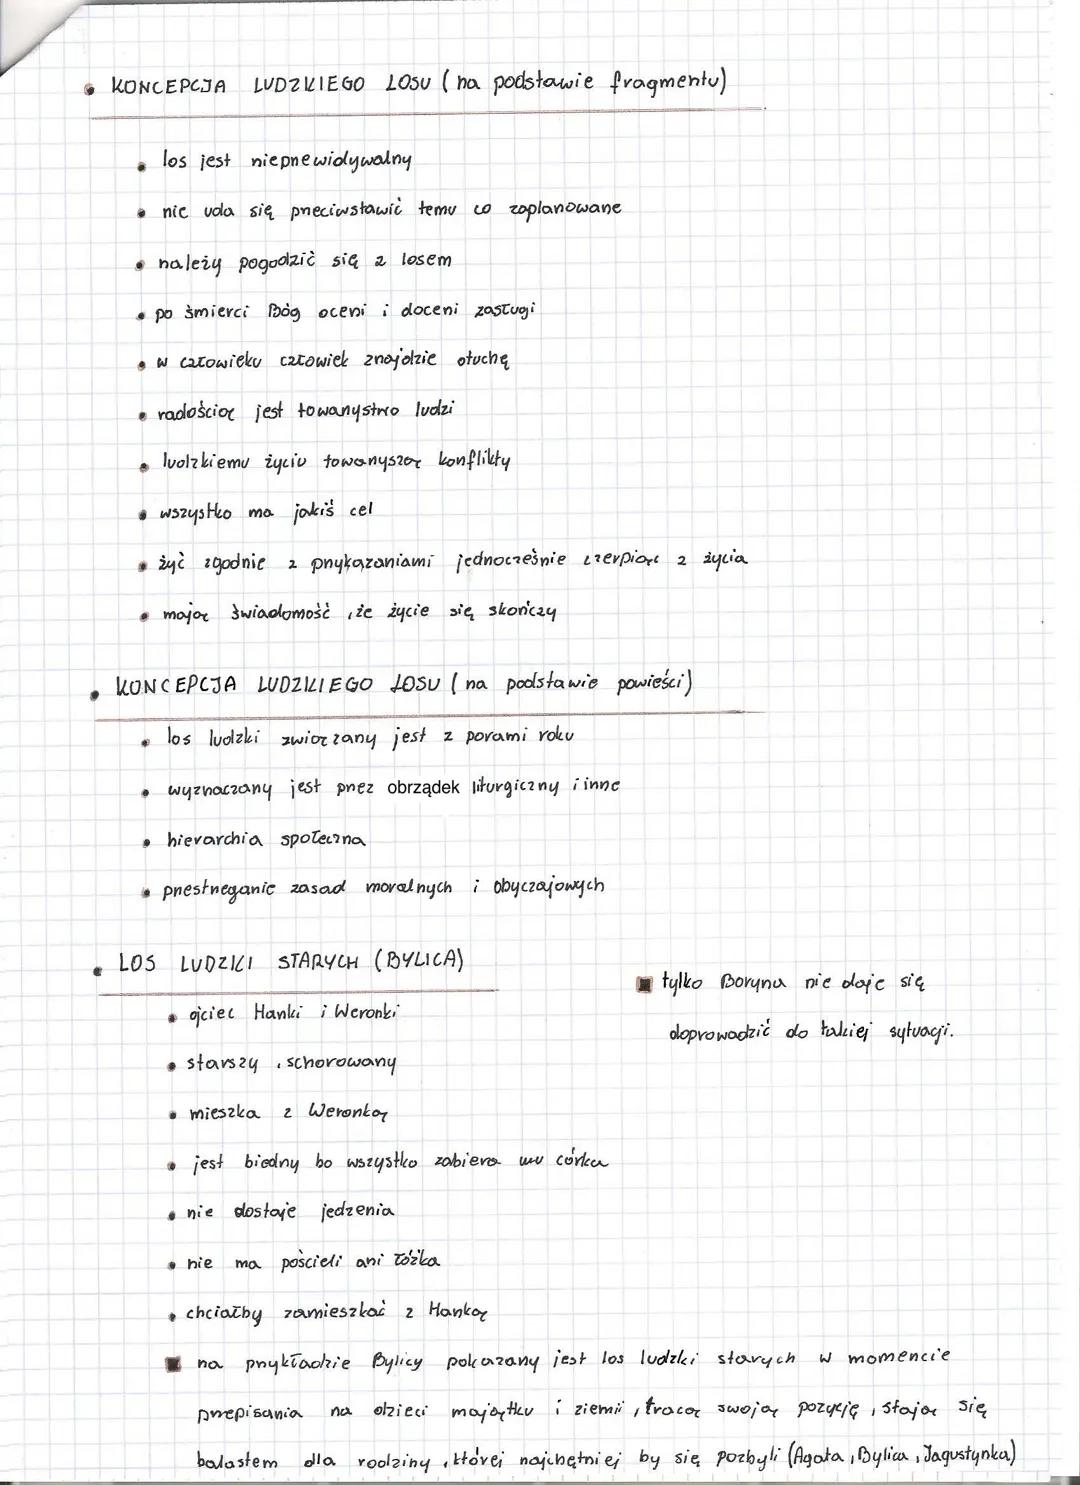 • KONCEPCJA LUDZKIEGO LOSU (na podstawie fragmentu)
• los jest nieprzewidywalny
• nie uda się przeciwstawić temu co zaplanowane
• należy pogodzić się z losem
• po śmierci Bóg oceni i doceni zasługi
• w człowieku człowiek znajdzie otuchę
• radością jest towarzystwo ludzi
• ludzkiemu życiu towarzyszą konflikty
• wszystko ma jakiś cel
• żyć zgodnie z przykazaniami jednocześnie czerpiąc z życia
• mają świadomość, że życie się skończy
• KONCEPCJA LUDZKIEGO LOSU (na podstawie powieści)
• los ludzki związany jest z porami roku
• wyznaczany jest przez obrządek liturgiczny i inne
• hierarchia społeczna
• przestrzeganie zasad moralnych i obyczajowych
• LOS LUDZKI STARYCH (BYLICA)
■ tylko Boryna nie daje się
doprowadzić do takiej sytuacji.
• ojciec Hanki i Weronki
• starszy, schorowany
• mieszka z Weronką
• jest biedny bo wszystko zabiera mu córka
• nie dostaje jedzenia
• nie ma pościeli ani łóżka
• chciałby zamieszkać z Hanką
■ na przykładzie Bylicy pokazany jest los ludzki starych w momencie
przepisania na dzieci majątku i ziemii, tracą swoją pozycję, stają się
balastem dla rodziny, której najchętniej by się pozbyli (Agata, Bylica, Jagustynka)